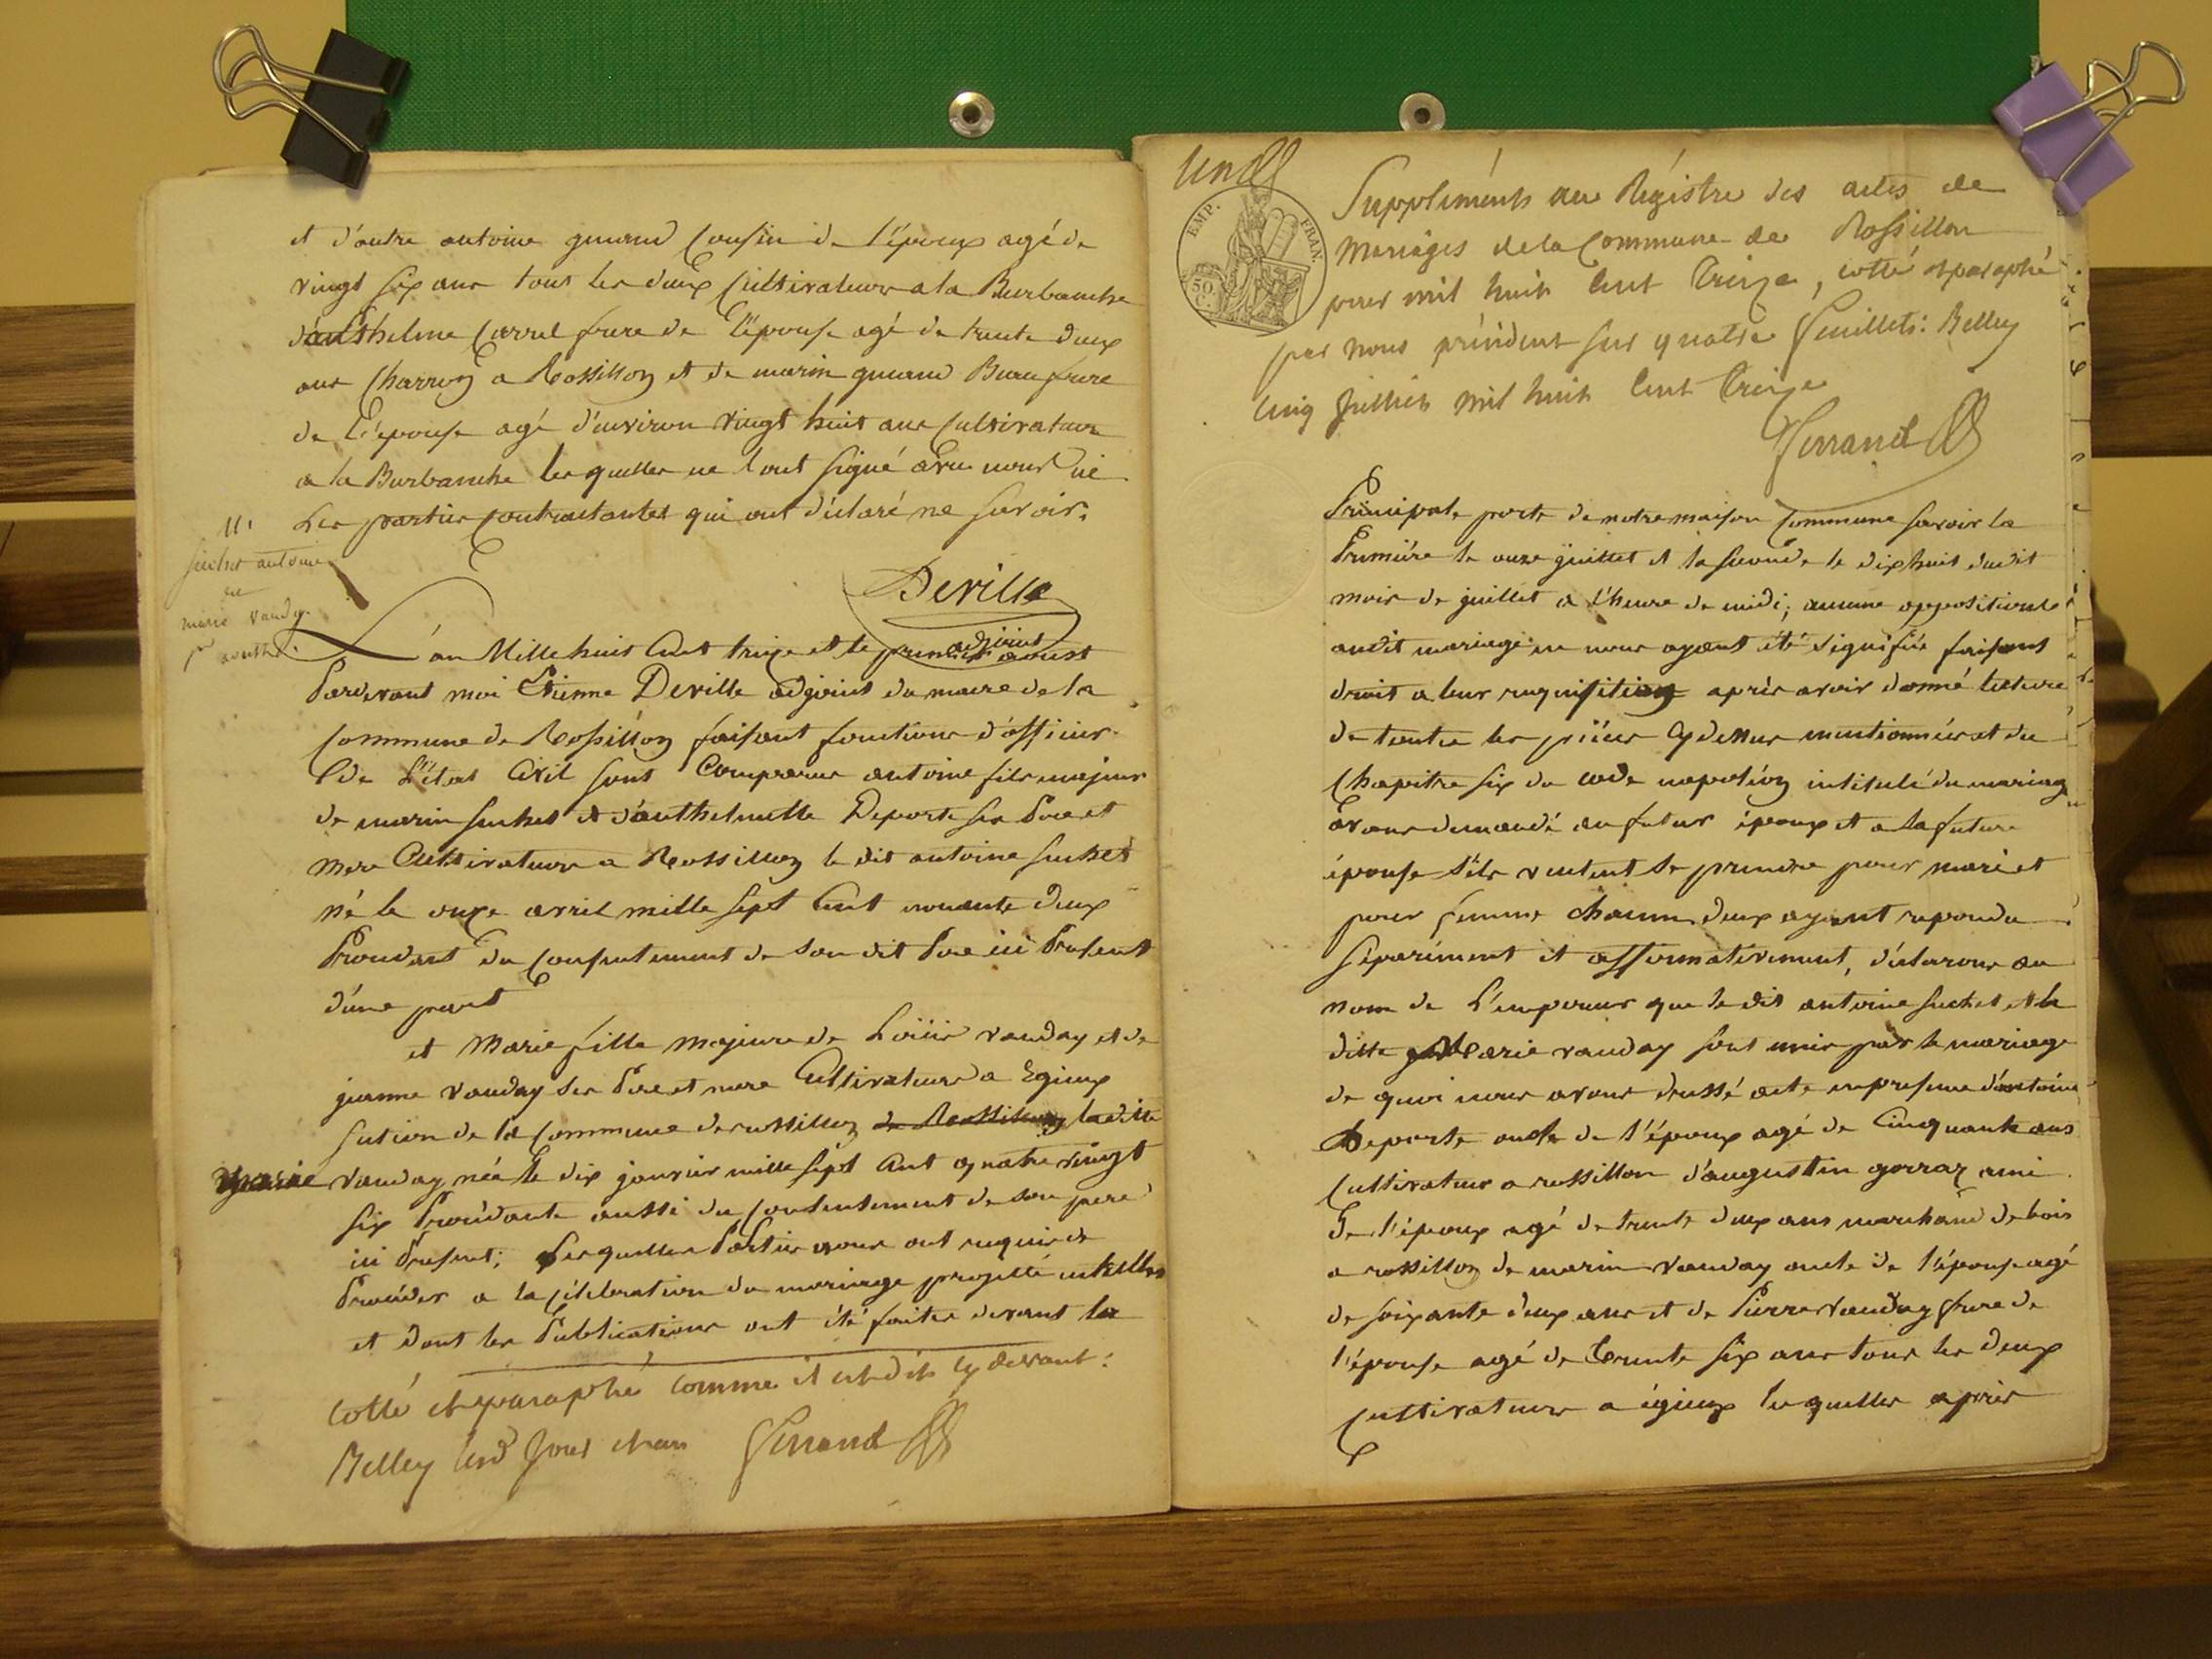 et d'autre antoine guinand Cousin de l'époux agé de
vingt six ans tous les deux Cultivateurs a la Burbanche
d'anthelme Carrel frere de l'épouse agé de trente deux
ans Charron a Rossillon et de marin guinand Beau frere
de l'épouse agé d'environ vingt huit ans Cultivateur
a la Burbanche les quelles ne l'ont signé avec nous ni
Les parties Contractantes qui ont déclaré ne savoir.
Deville
adjoint
11.
suchet antoine
et
marie vauday.
pr aoust.
L'an Mille huit Cent treize et le premier aoust
Pardevant moi Etienne Deville adjoint du maire de la
Commune de Rossillon faisant fonctions d'officier
de L'état Civil sont Comparus antoine fils majeur
de marin suchet et d'anthelmette Deporte ses Pere et
mere Cultivateurs a Rossillon le dit antoine suchet
né le onze avril mille sept Cent nonante deux
Procedant du Consentement de son dit Pere ici Present
d'une part
et Marie fille majeure de Loüis vauday et de
jeanne vauday ses Pere et mere Cultivateurs a Egieux
section de la Commune de rossillon de Rossillon la ditte
marie vauday née le dix janvier mille sept Cent quatre vingt
six Procédante aussi du Consentement de son pere
ici Present; Lesquelles Parties nous ont requis de
Procéder a la Célébration du mariage projetté entr'elles
et dont les Publications ont été faites devant la
Cotté et paraphé comme il est dit cy devant:
Belley lesd jour et an Ferrand
un
EMP. FRAN.
50 C.
Suppléments au Régistre des actes de
Mariages de la Commune de Rossillon
pour mil huit Cent Treize, cotté et paraphé
par nous président sur quatre feuillets: Belley
cinq Juillet mil huit Cent Treize
Ferrand
Principale porte de notre maison Commune savoir la
Premiére le onze juillet et la seconde le dix huit dudit
mois de juillet a l'heure de midi; aucune opposition
audit mariage ne nous ayant été signifiée faisant
droit a leur requisition après avoir donné lecture
de toutes les piéces cy dessus mentionnées et du
Chapitre six du code napoléon intitulé du mariage
avons demandé au futur époux et a la future
épouse s'ils veulent se prendre pour mari et
pour femme chacun deux ayant repondu
séparément et affirmativement, déclarons au
nom de L'empereur que le dit antoine suchet et la
ditte marie vauday sont unis par le mariage
de quoi nous avons dressé acte en presence d'antoine
Deporte oncle de l'époux agé de Cinquante ans
Cultivateur a rossillon d'augustin gorraz ami
De l'époux agé de trente deux ans marchand de bois
a rossillon de marin vauday oncle de l'épouse agé
de soixante deux ans et de Pierre vauday frere de
l'épouse agé de trente six ans tous les deux
Cultivateurs a égieux les quelles après